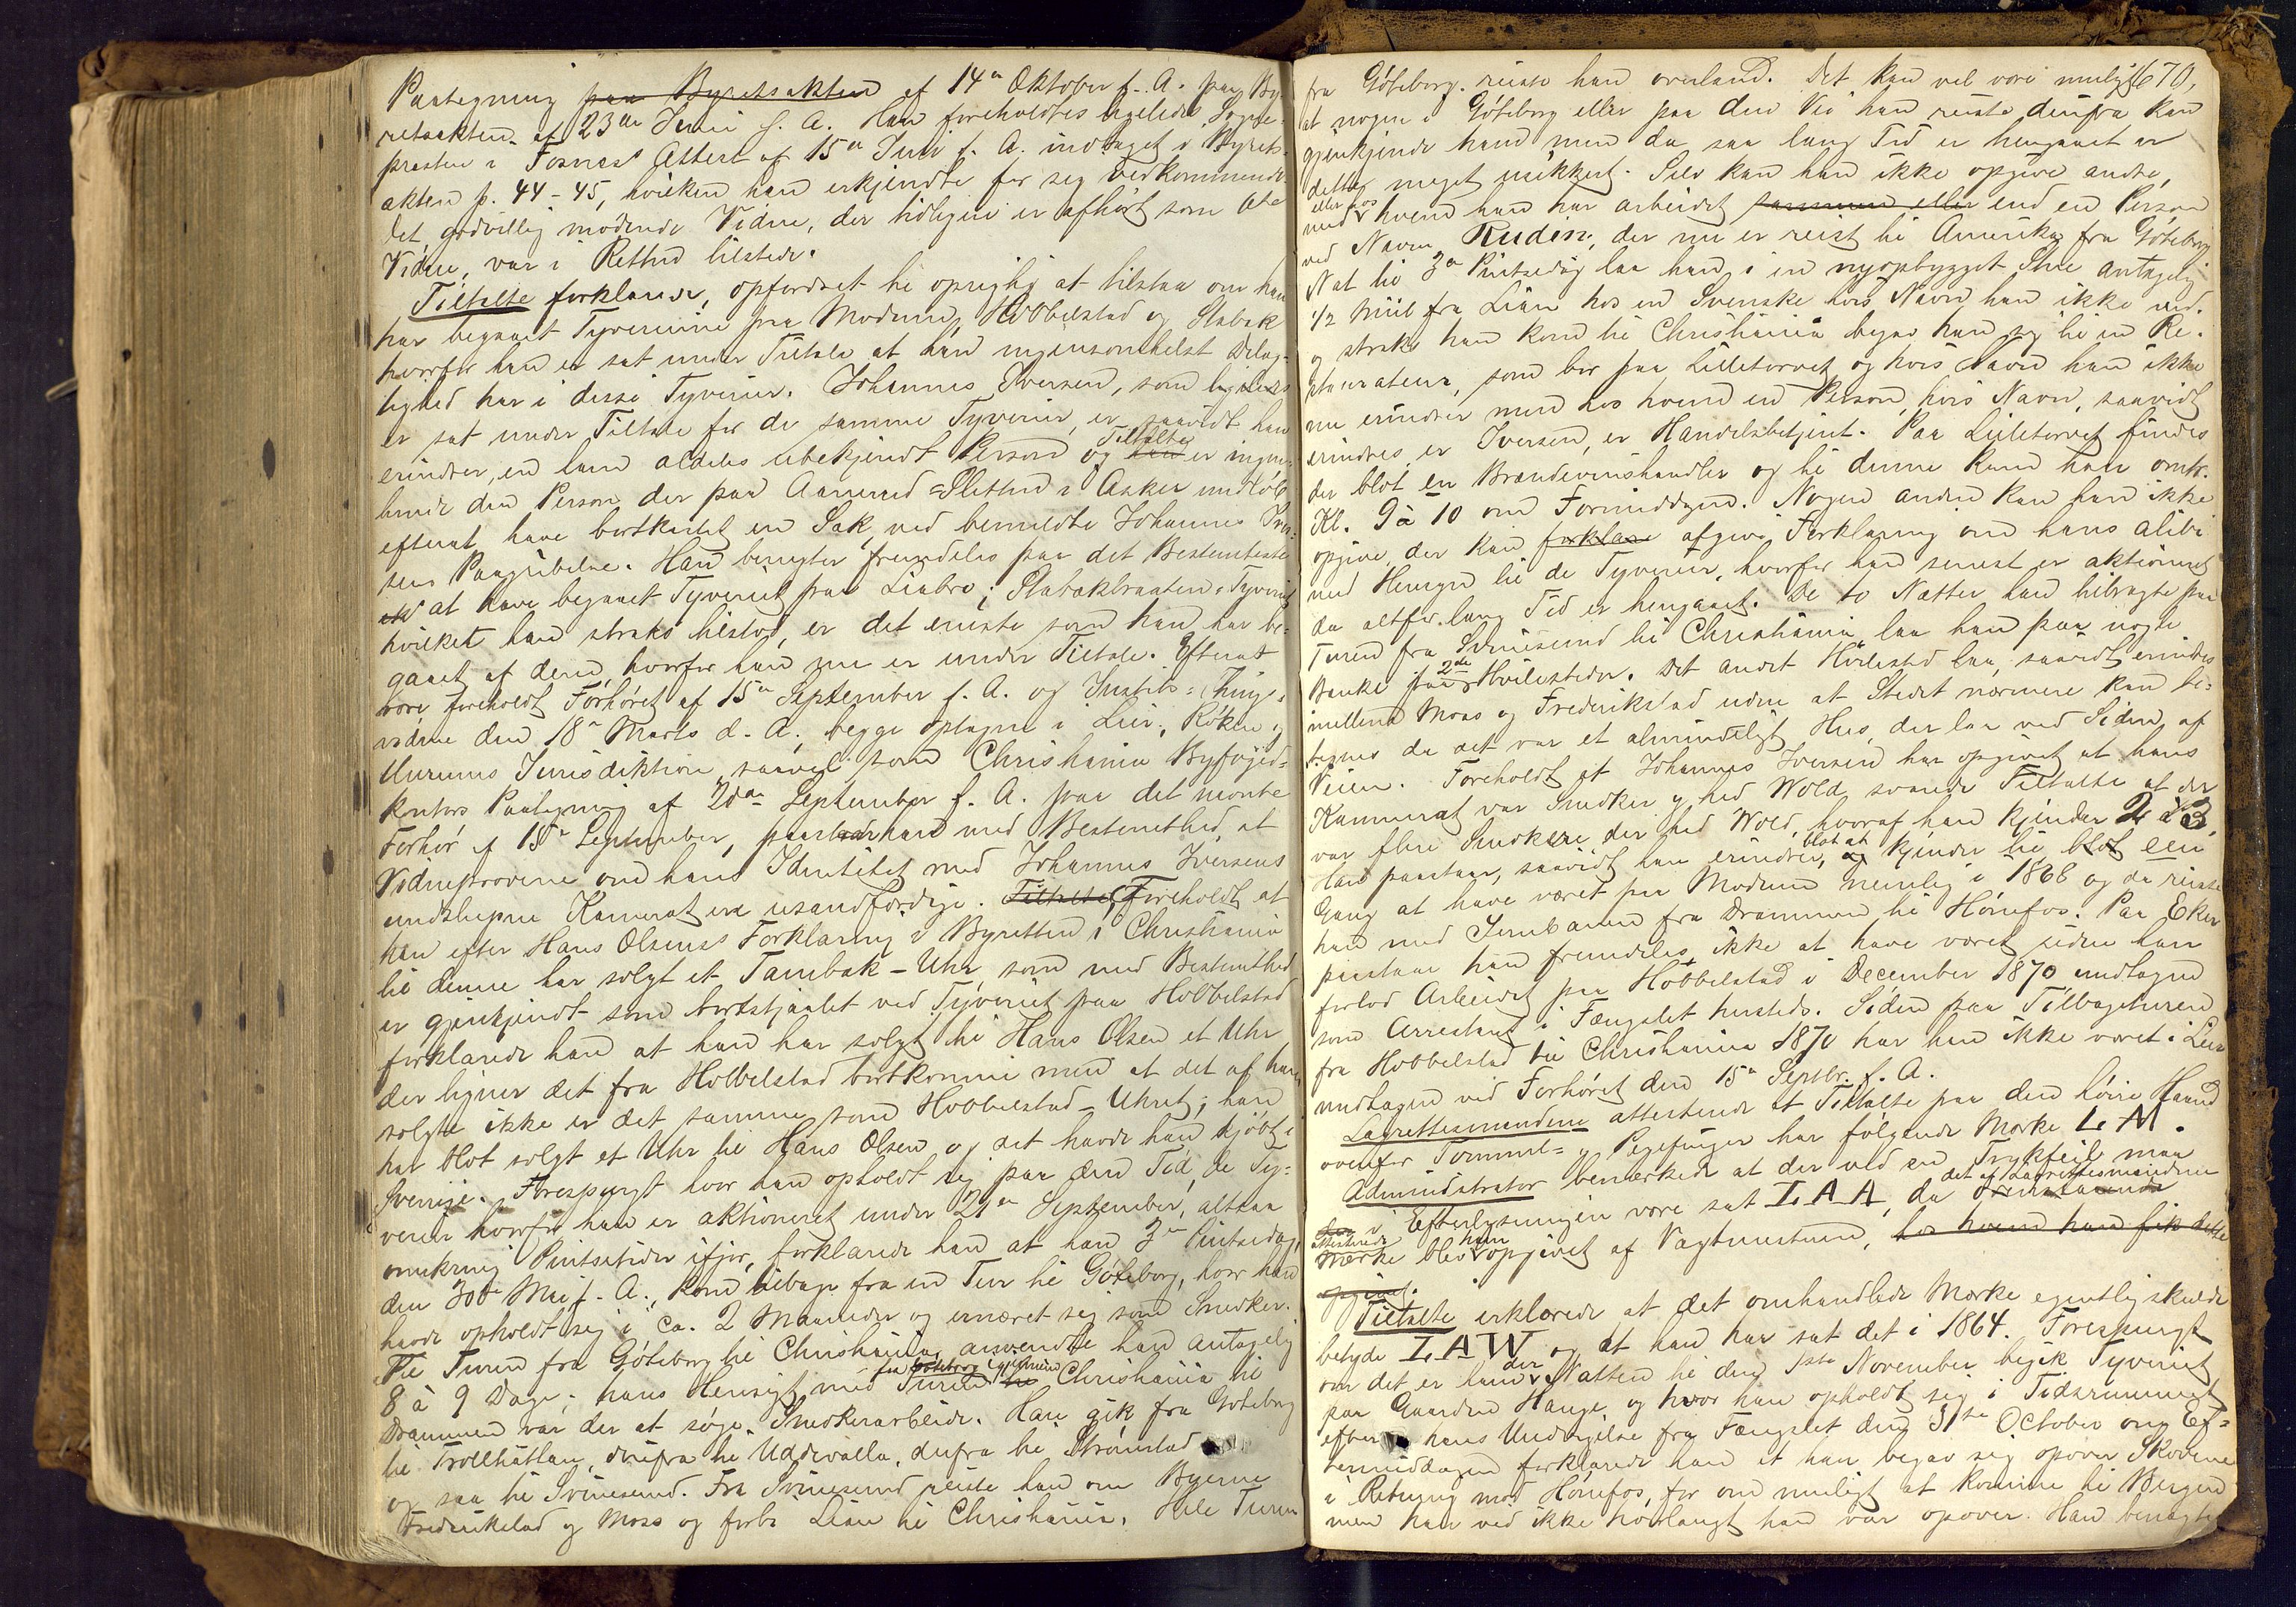 Paategning paa Byretsakten af 14de Oktober f. A. paa By-
retsakten af 23de Juni f. A. Han foreholdtes ligeledes Sogne-
præsten i Fosnæs' Attest af 15de Juni f. A. indtaget i Byrets-
akten p. 44-45, hvilken han erkjendte for sig vedkommende.
Det godvillig mødende Vidne, der tidligere er afhørt som 6te
Vidne, var i Retten tilstede.
Tiltalte forklarede, opfordret til oprigtig at tilstaa om han
har begaaet Tyverierne paa Modum, Hobbelstad og Stabæk
hvorfor han er sat under Tiltale at han ingensomhelst Delag-
tighed har i disse Tyverier. Johannes Iversen, som ligeledes
er sat under Tiltale for de samme Tyverier, er saavidt han
erindrer, en ham aldeles ubekjendt Person og han Tiltalte er ingen-
lunde den Person der paa Aanerud-Sletten i Asker undløb
efterat have bortkastet en Sæk ved bemeldte Johannes Iver-
sens Paagribelse. Han benegter fremdeles paa det Bestemteste
at have begaaet Tyveriet paa Liabro; Stabækbraaten-Tyveriet
hvilket han straks tilstod, er det eneste som han har be-
gaaet af dem, hvorfor han nu er under Tiltale. Efterat
være foreholdt Forhøret af 15de September f. A. og Justits-Things-
vidne den 18de Marts d. A., begge optagne i Lier, Røken og
Hurums Jurisdiktion, saavel som Christiania Byfoged-
kontors Paategning af 20de September f. A. paa det nævnte
Forhør af 15de September, paastod han med Bestemthed, at
Vidneprovene om hans Identitet med Johannes Iversens
undslupne Kamerat ere usandfærdige. Tiltalte, Foreholdt at
han efter Hans Olsens Forklaring i Byretten i Christiania
til denne har solgt et Tambak-Uhr, som med Bestemthed
er gjenkjendt som bortstjaalet ved Tyveriet paa Hobbelstad
forklarede han at han har solgt til Hans Olsen et Uhr
der ligner det fra Hobbelstad bortkomne men at det af ham
solgte ikke er det samme som Hobbelstad-Uhret; han
har blot solgt et Uhr til Hans Olsen og det havde han kjøbt i
Sverige. Forespurgt hvor han opholdt sig paa den Tid, de Ty-
verier hvorfor han er aktioneret under 21de September, altsaa
omkring Pintsetider ifjor, forklarede han at han 3de Pintsedag,
den 30te Mai f. A., kom tilbage fra en Tur til Göteborg, hvor han
havde opholdt sig i ca. 2 Maaneder og ernæret sig som Snedker.
Til Turen fra Göteborg til Christiania anvendte han antagelig
8 à 9 Dage; hans Hensigt med Turen fra Göteborg til Christiania til
Drammen var der at søge Snedkerarbeide. Han gik fra Göteborg
til Trollhättan, derfra til Uddewalla, derfra til Strømstad
og saa til Svinesund. Fra Svinesund reiste han om Byerne
Frederikstad og Moss og forbi Lian til Christiania. Hele Turen
670,
fra Göteborg reiste han overland. Det kan vel være muligt
at nogen i Göteborg eller paa den Vei han reiste derfra kan
gjenkjende ham men da saa lang Tid er hengaaet er
dette meget usikkert. Selv kan han ikke opgive andre,
med eller hos hvem han har arbeidet sammen eller end en Person
ved Navn Rudin, der nu er reist til Amerika fra Göteborg
Nat til 3de Pintsedag laa han i en nyopbygget Stue antagelig
1/2 Miil fra Lian hos en Svenske hvis Navn han ikke ved.
og straks han kom til Christiania begav han sig til en Re-
staurateur, som bor paa Lilletorvet og hvis Navn han ikke
nu erindrer men hos hvem en Person, hvis Navn, saavidt
erindres er Iversen, er Handelsbetjent. Paa Lilletorvet findes
der blot en Brændevinshandler og til denne kom han omtr.
Kl. 9 à 10 om Formiddagen. Nogen anden kan han ikke
opgive, der kan forklare afgive Forklaring om hans alibi
med Hensyn til de Tyverier, hvorfor han senest er aktioneret
da altfor lang Tid er hengaaet. De to Nætter han tilbragte paa
Turen fra Svinesund til Christiania laa han paa nogle
Bænke paa 2de Hvilesteder. Det andet Hvilested laa, saavidt erindres
imellem Moss og Frederikstad uden at Stedet nærmere kan be-
tegnes da det var et almindeligt Hus, der laa ved Siden af
Veien. Foreholdt at Johannes Iversen har opgivet at hans
Kamerat var Snedker og hed Wold svarede Tiltalte at der
var flere Snedkere der hed Wold, hvoraf han kjender 2 à 3.
Han paastaar, saavidt han erindrer, og blot at kjende til blot een
Gang at have været paa Modum nemlig i 1868 og da reiste
han med Jernbanen fra Drammen til Hønefos. Paa Eker
paastaar han fremdeles ikke at have været siden han
forlod Arbeidet paa Hobbelstad i December 1870 undtagen
som Arrestant i Fængslet hersteds. Siden paa Tilbageturen
fra Hobbelstad til Christiania 1870 har han ikke været i Lier
undtagen ved Forhøret den 15de Septbr. f. A.
Lagrettesmændene attesterede at Tiltalte paa den høire Haand
ovenfor Tommel- og Pegefinger har følgende Mærke L A A.
Administrator bemærkede at der ved en Trykfeil maa
i Efterlysningen være sat I A A, da det af Lagrettesmændene
attesterede Mærke blev ham opgivet af Vagtmesteren, hos hvem han fik dette
opgivet.
Tiltalte erklærede at det omhandlede Mærke egentlig skulde
betyde I A W og at han har sat det i 1864. Forespurgt
om det er ham der Natten til den 1ste November begik Tyveriet
paa Gaarden Hauge og hvor han opholdt sig i Tidsrummet
efter hans Undvigelse fra Fængslet den 31te October om Ef-
termiddagen forklarede han at han begav sig opover Skovene
i Retning mod Hønefos, for om muligt at komme til Bergen
men han ved ikke hvorlangt han var opover. Han benegter